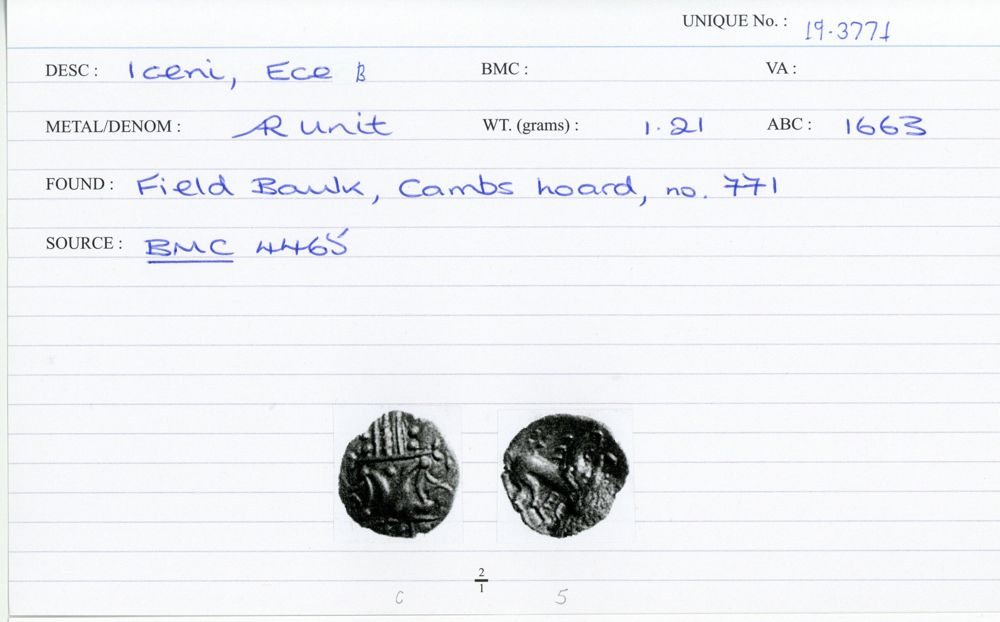 UNIQUE No. : 19-3771
DESC : Iceni, Ece B BMC : VA :
METAL/DENOM : AR unit WT. (grams) : 1.21 ABC : 1663
FOUND : Field Baulk, Cambs hoard, no. 771
SOURCE : BMC 4465
2
1
C 5